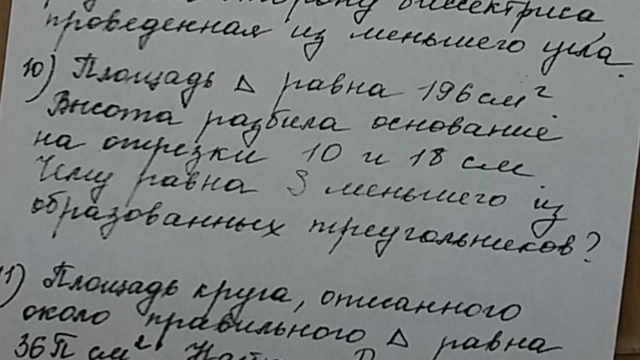 сторону биссектриса,
проведенная из меньшего угла.
10) Площадь △ равна 196 см²
Высота разбила основание
на отрезки 10 и 18 см
Чему равна S меньшего из
образованных треугольников?
11) Площадь круга, описанного
около правильного △ равна
36π см².